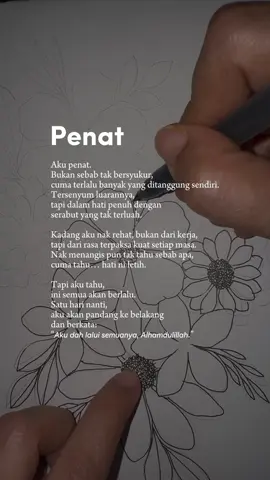 Penat
Aku penat.
Bukan sebab tak bersyukur,
cuma terlalu banyak yang ditanggung sendiri.
Tersenyum luarannya,
tapi dalam hati penuh dengan
serabut yang tak terluah.
Kadang aku nak rehat, bukan dari kerja,
tapi dari rasa terpaksa kuat setiap masa.
Nak menangis pun tak tahu sebab apa,
cuma tahu… hati ni letih.
Tapi aku tahu,
ini semua akan berlalu.
Satu hari nanti,
aku akan pandang ke belakang
dan berkata:
"Aku dah lalui semuanya, Alhamdulillah."